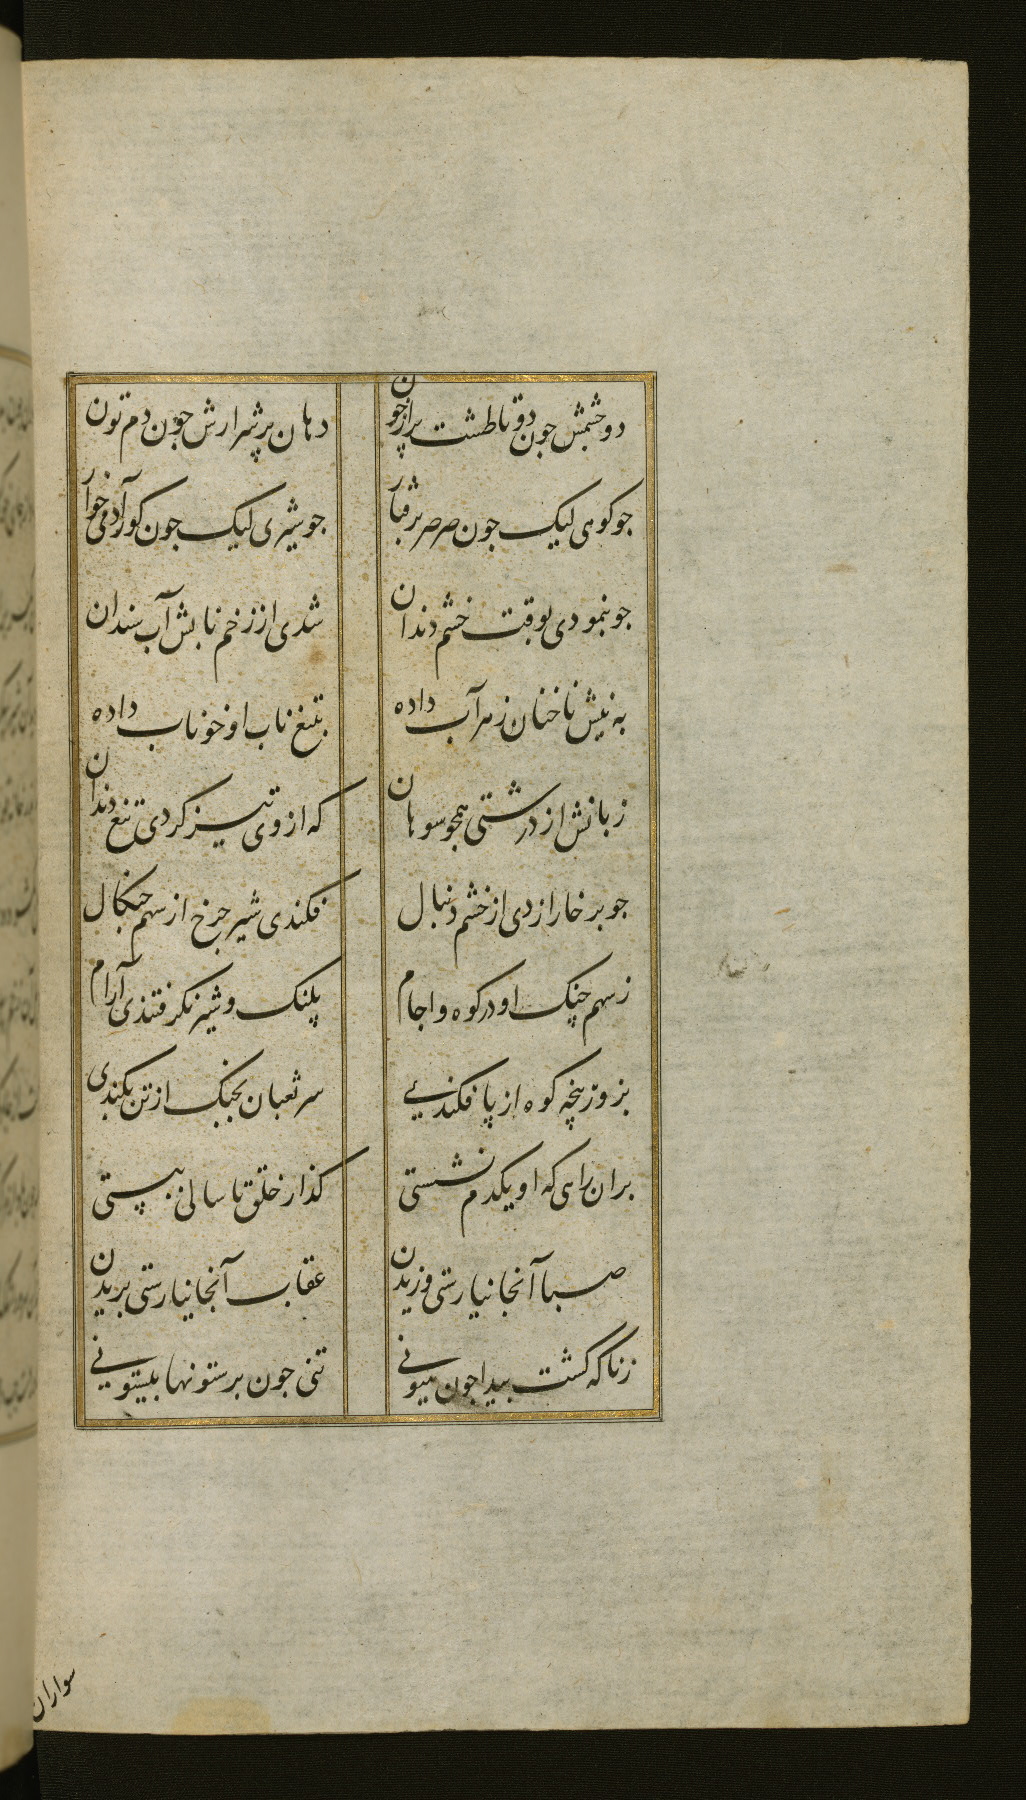 دو چشمش جون دو تا طشت پر از خون
دهان پر شرارش جون دم تون
جو کوهی لیک جون صرصر برفتار
جو شیری لیک جون کور آدمی خوار
جو بنمودی بوقت خشم دندان
شدی از زخم نابش آب سندان
به نیش ناخنان زهر آب داده
بتیغ ناب او خوناب داده
زبانش از درشتی همجو سوهان
که از وی تیز کردی تیغ دندان
جو بر خارا زدی از خشم دنبال
فکندی شیر جرخ از سهم جنکال
ز سهم جنک او در کوه و اجام
پلنک و شیر نکرفتندی آرام
بزور پنجه کوه از پا فکندی
سر ثعبان بجنک از تن بکندی
بران راهی که او یکدم نشستی
کذار خلق تا سالی ببستی
صبا آنجا نیارستی وزیدن
عقاب آنجا نیارستی بریدن
ز ناکه کشت بیدا جون هیونی
تنی جون بر ستونها بیستونی
سواران